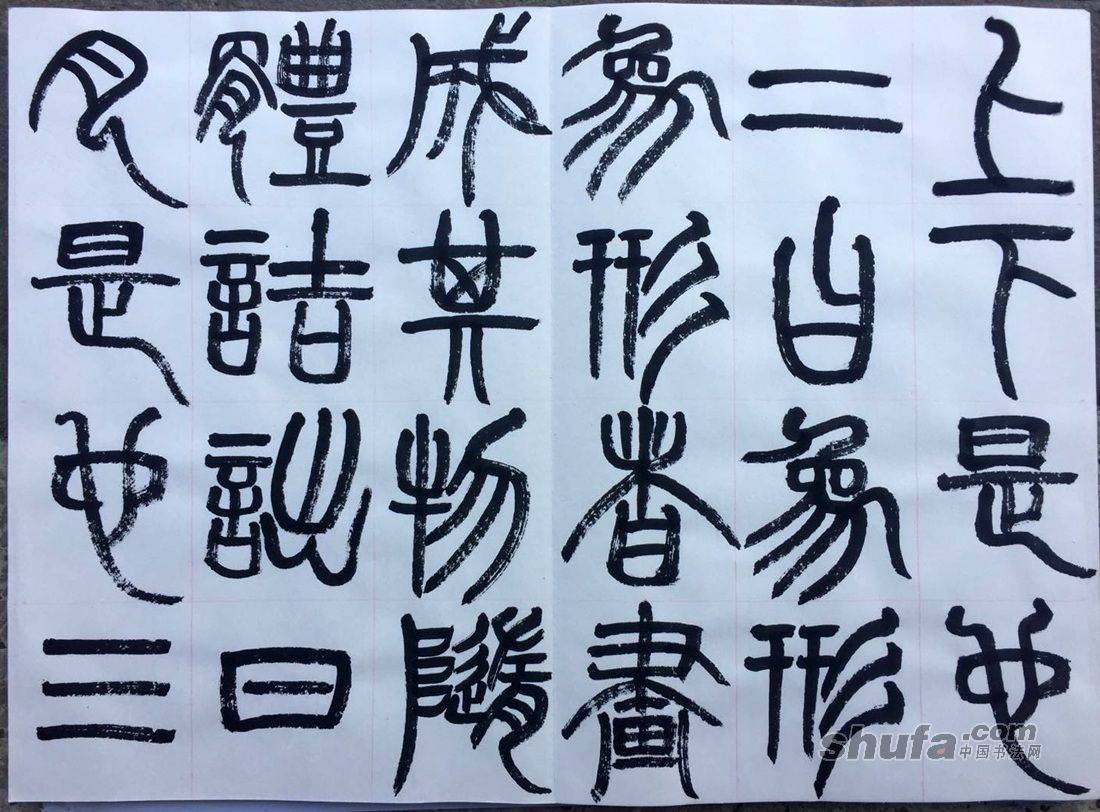 上下是也
二曰象形
象形者畫
成其物隨
體詰詘日
月是也三
shufa.com
中国书法网